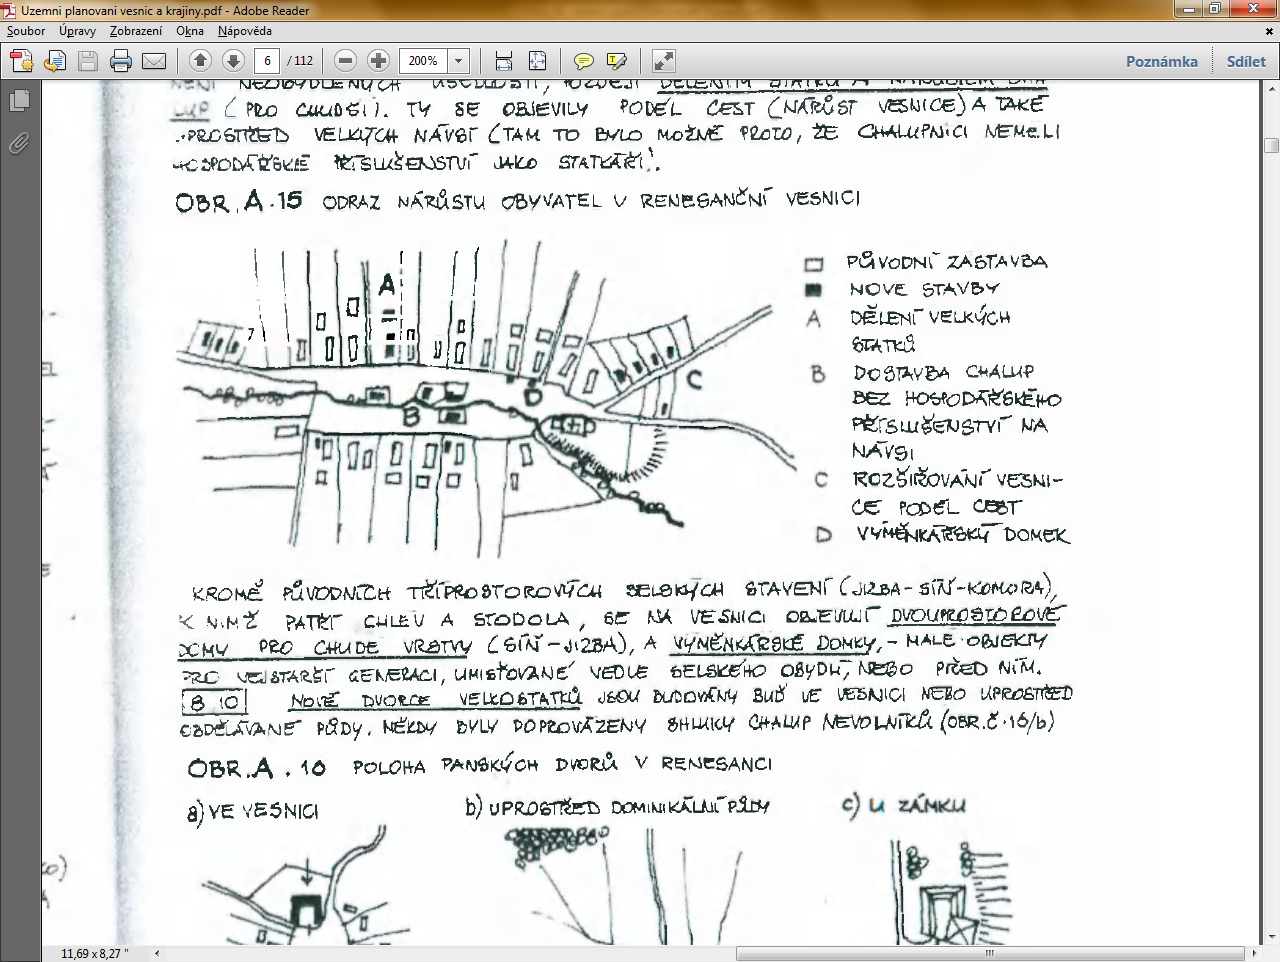 Uzemni planovani vesnic a krajiny.pdf - Adobe Reader
Soubor Úpravy Zobrazení Okna Nápověda
6 / 112 200% Poznámka Sdílet
NEOBYDLENÝCH USEDLOSTÍ, POZDĚJI DĚLENÍM STATKŮ A
(PRO CHUDŠÍ). TY SE OBJEVILY PODÉL CEST (NÁRŮST VESNICE) A TAKÉ
UPROSTŘED VELKÝCH NÁVSÍ (TAM TO BYLO MOŽNÉ PROTO, ŽE CHALUPNÍCI NEMĚLI
HOSPODÁŘSKÉ PŘÍSLUŠENSTVÍ JAKO STATKÁŘI).
OBR. A. 15 ODRAZ NÁRŮSTU OBYVATEL V RENESANČNÍ VESNICI
A
B
C
D
PŮVODNÍ ZÁSTAVBA
NOVÉ STAVBY
A DĚLENÍ VELKÝCH
STATKŮ
B DOSTAVBA CHALUP
BEZ HOSPODÁŘSKÉHO
PŘÍSLUŠENSTVÍ NA
NÁVSI
C ROZŠIŘOVÁNÍ VESNI-
CE PODÉL CEST
D VÝMĚNKÁŘSKÝ DOMEK
KROMĚ PŮVODNÍCH TŘÍPROSTOROVÝCH SELSKÝCH STAVENÍ (JIZBA-SÍŇ-KOMORA),
K NIMŽ PATŘÍ CHLÉV A STODOLA, SE NA VESNICI OBJEVUJÍ DVOUPROSTOROVÉ
DOMY PRO CHUDÉ VRSTVY (SÍŇ-JIZBA), A VÝMĚNKÁŘSKÉ DOMKY, - MALÉ OBJEKTY
PRO NEJSTARŠÍ GENERACI, UMISŤOVANÉ VEDLE SELSKÉHO OBYDLÍ, NEBO PŘED NÍM.
B 10 NOVÉ DVORCE VELKOSTATKŮ JSOU BUDOVÁNY BUĎ VE VESNICI NEBO UPROSTŘED
OBDĚLÁVANÉ PŮDY. NĚKDY BYLY DOPROVÁZENY SHLUKY CHALUP NEVOLNÍKŮ (OBR.Č.16/b)
OBR. A. 16 POLOHA PANSKÝCH DVORŮ V RENESANCI
a) VE VESNICI
b) UPROSTŘED DOMINIKÁLNÍ PŮDY
c) U ZÁMKU
11,69 x 8,27 "